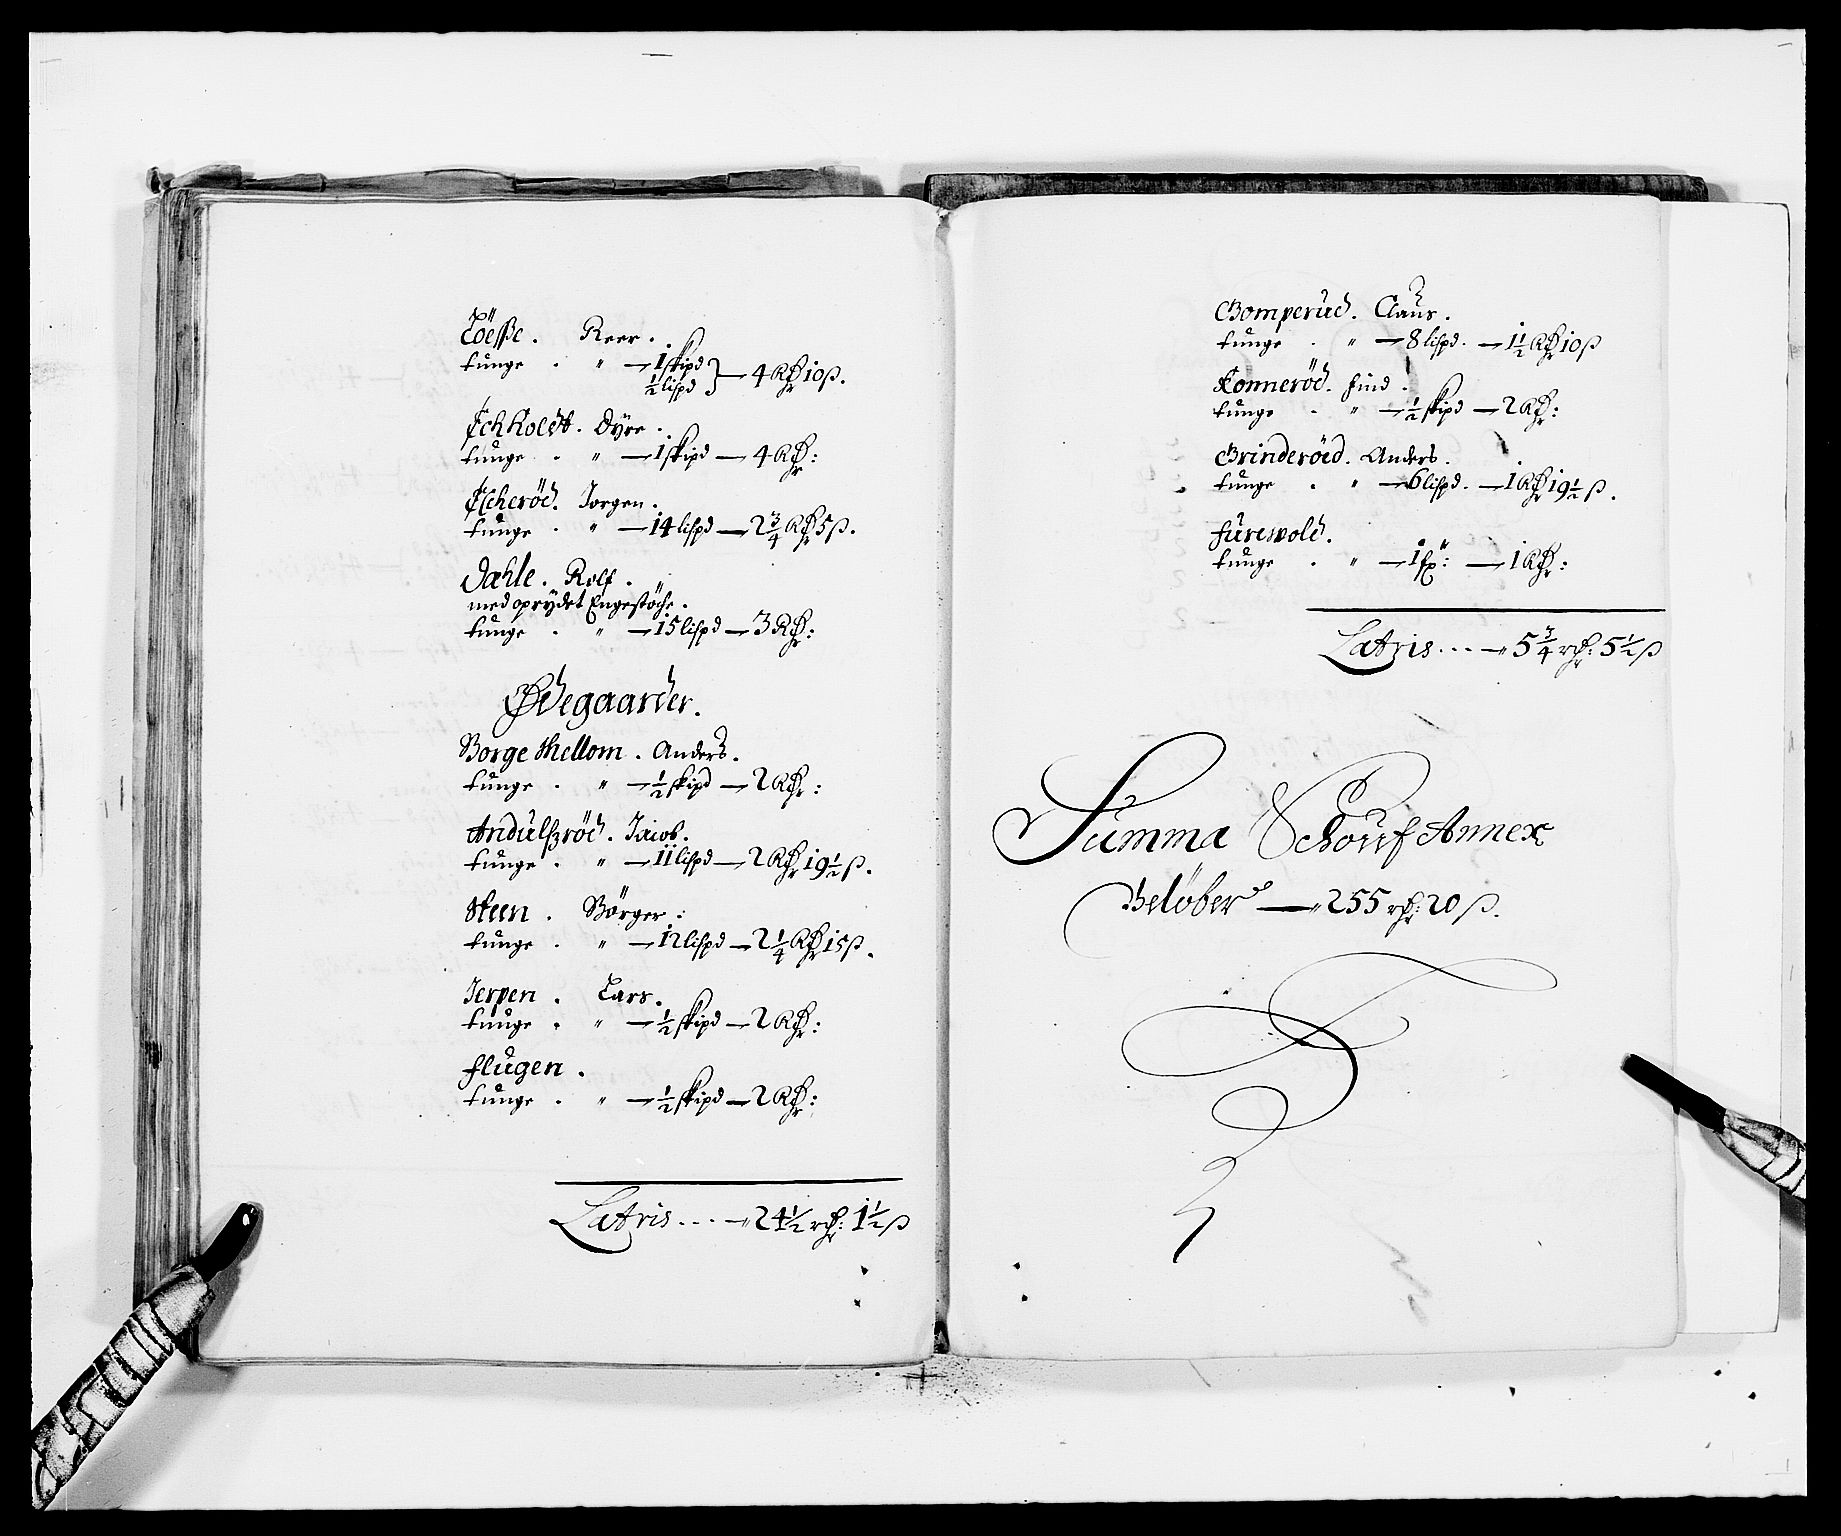 Töeße. Reer.
tunge. " — 1 skipd
½ lispd } — 4 Rdr 10 ß.
Echholdt. Dÿre.
tunge. " — 1 skipd — 4 Rdr:
Elcheröd. Jorgen.
tunge. " — 14 lispd — 2¾ Rdr 5 ß.
Dahle. Rolf.
med oprÿdet Engestöche.
tunge. " — 15 lispd — 3 Rdr:
Ødegaarder.
Borge Mellom. Anders.
tunge. " — ½ skipd — 2 Rdr:
Andulßröd. Jacob.
tunge. " — 11 lispd — 2 Rdr 19½ ß.
Steen. Börger:
tunge. " — 12 lispd — 2¼ Rdr 15 ß.
Jerpen. Lars.
tunge. " — ½ skipd — 2 Rdr:
Flugen.
tunge. " — ½ skipd — 2 Rdr:
Latris... — 24½ rdr: 1½ ß
Gomperud. Claus.
tunge. " — 8 lispd. — 1½ Rdr 10 ß
Konneröd. Find.
tunge. " — ½ skipd — 2 Rdr:
Grinderöed. Anders.
tunge. " — 6 lispd. — 1 Rdr 19½ ß.
Furewold.
tunge. " — 1 fx: — 1 Rdr:
Latris... — 5¾ rdr: 5½ ß
Summa Schouf Annex
Belöber — 255 rdr: 20 ß.